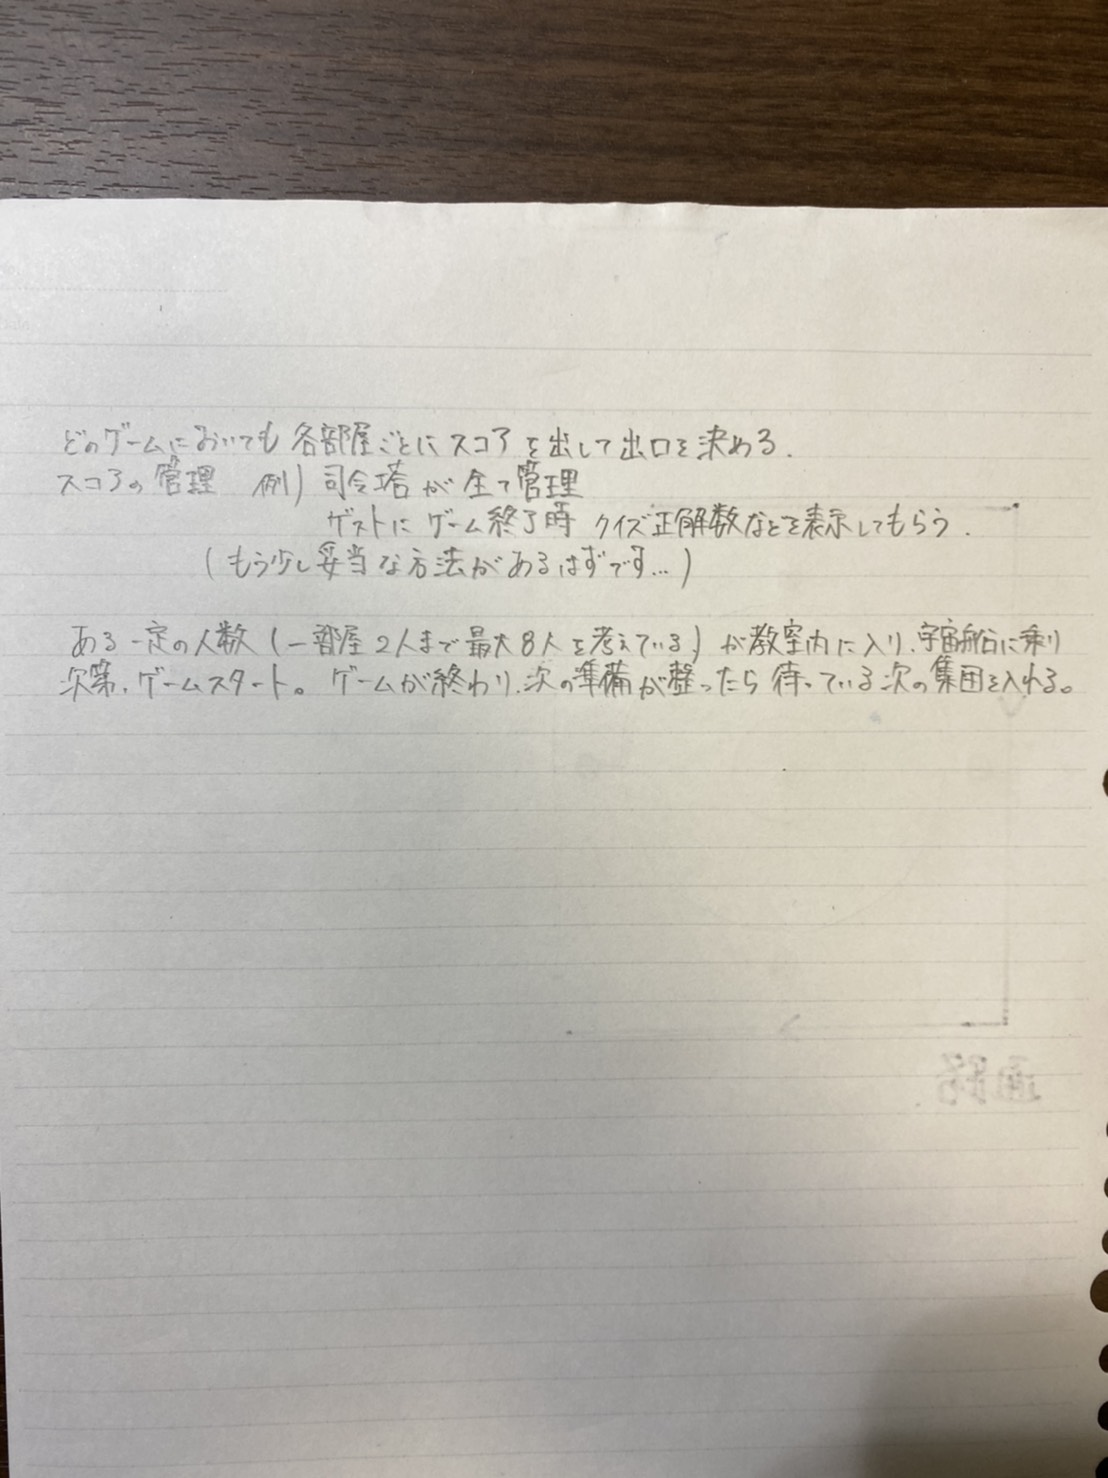 どのゲームにおいても 各部屋ごとにスコアを出して出口を決める.
スコアの管理 例) 司令塔が全て管理
ゲストにゲーム終了時 クイズ正解数などを表示してもらう.
(もう少し妥当な方法があるはずです...)
ある一定の人数 (一部屋2人まで最大8人を考えている) が教室内に入り、宇宙船に乗り
次第、ゲームスタート。ゲームが終わり、次の準備が整ったら待っている次の集団を入れる。
通路